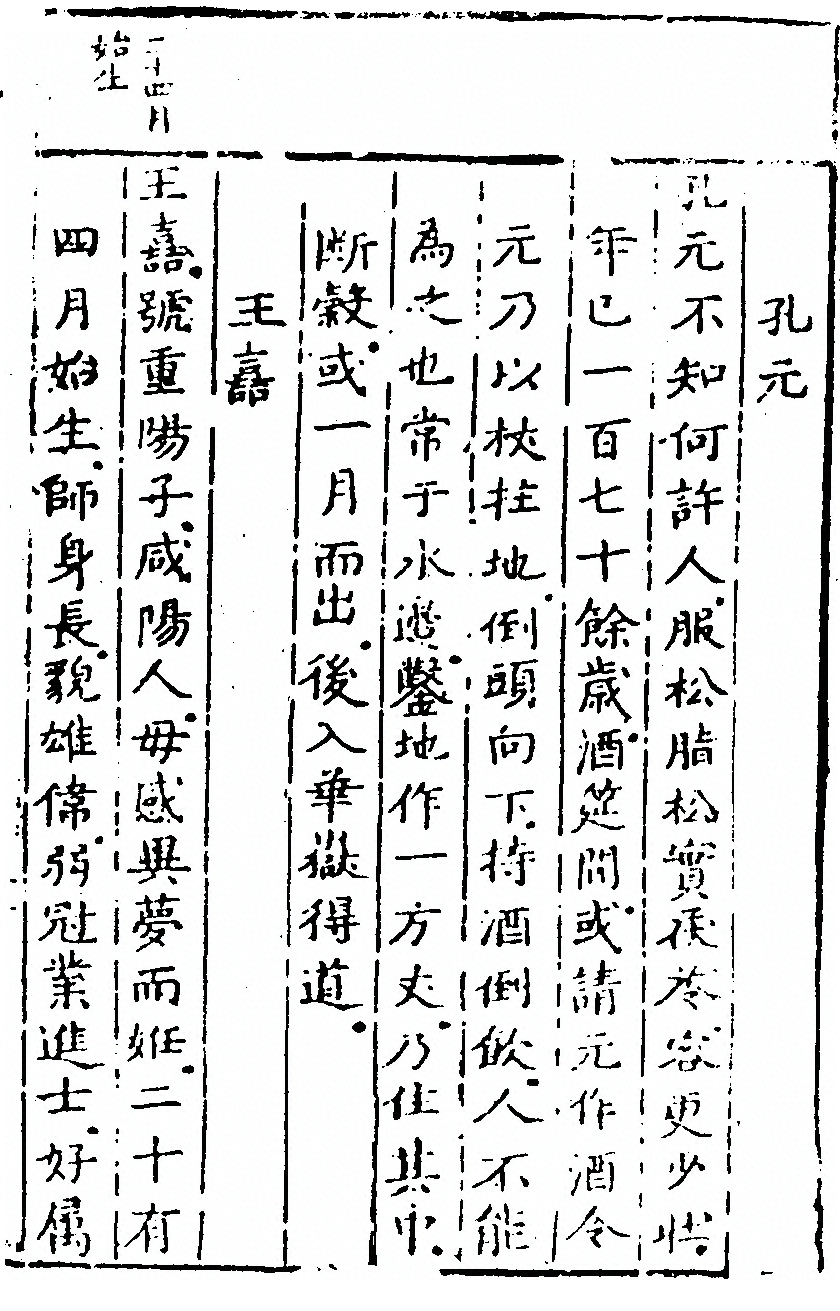 孔元
孔元不知何許人服松脂松實茯苓容更少壯
年已一百七十餘歲酒筵間或請元作酒令
元乃以杖拄地倒頭向下持酒倒飲人不能
為之也常于水邊鑿地作一方丈乃住其中
斷穀或一月而出後入華嶽得道
王嚞
王嚞號重陽子咸陽人毋感異夢而姙二十有
四月始生師身長貌雄偉弱冠業進士好属
二十四月
始生